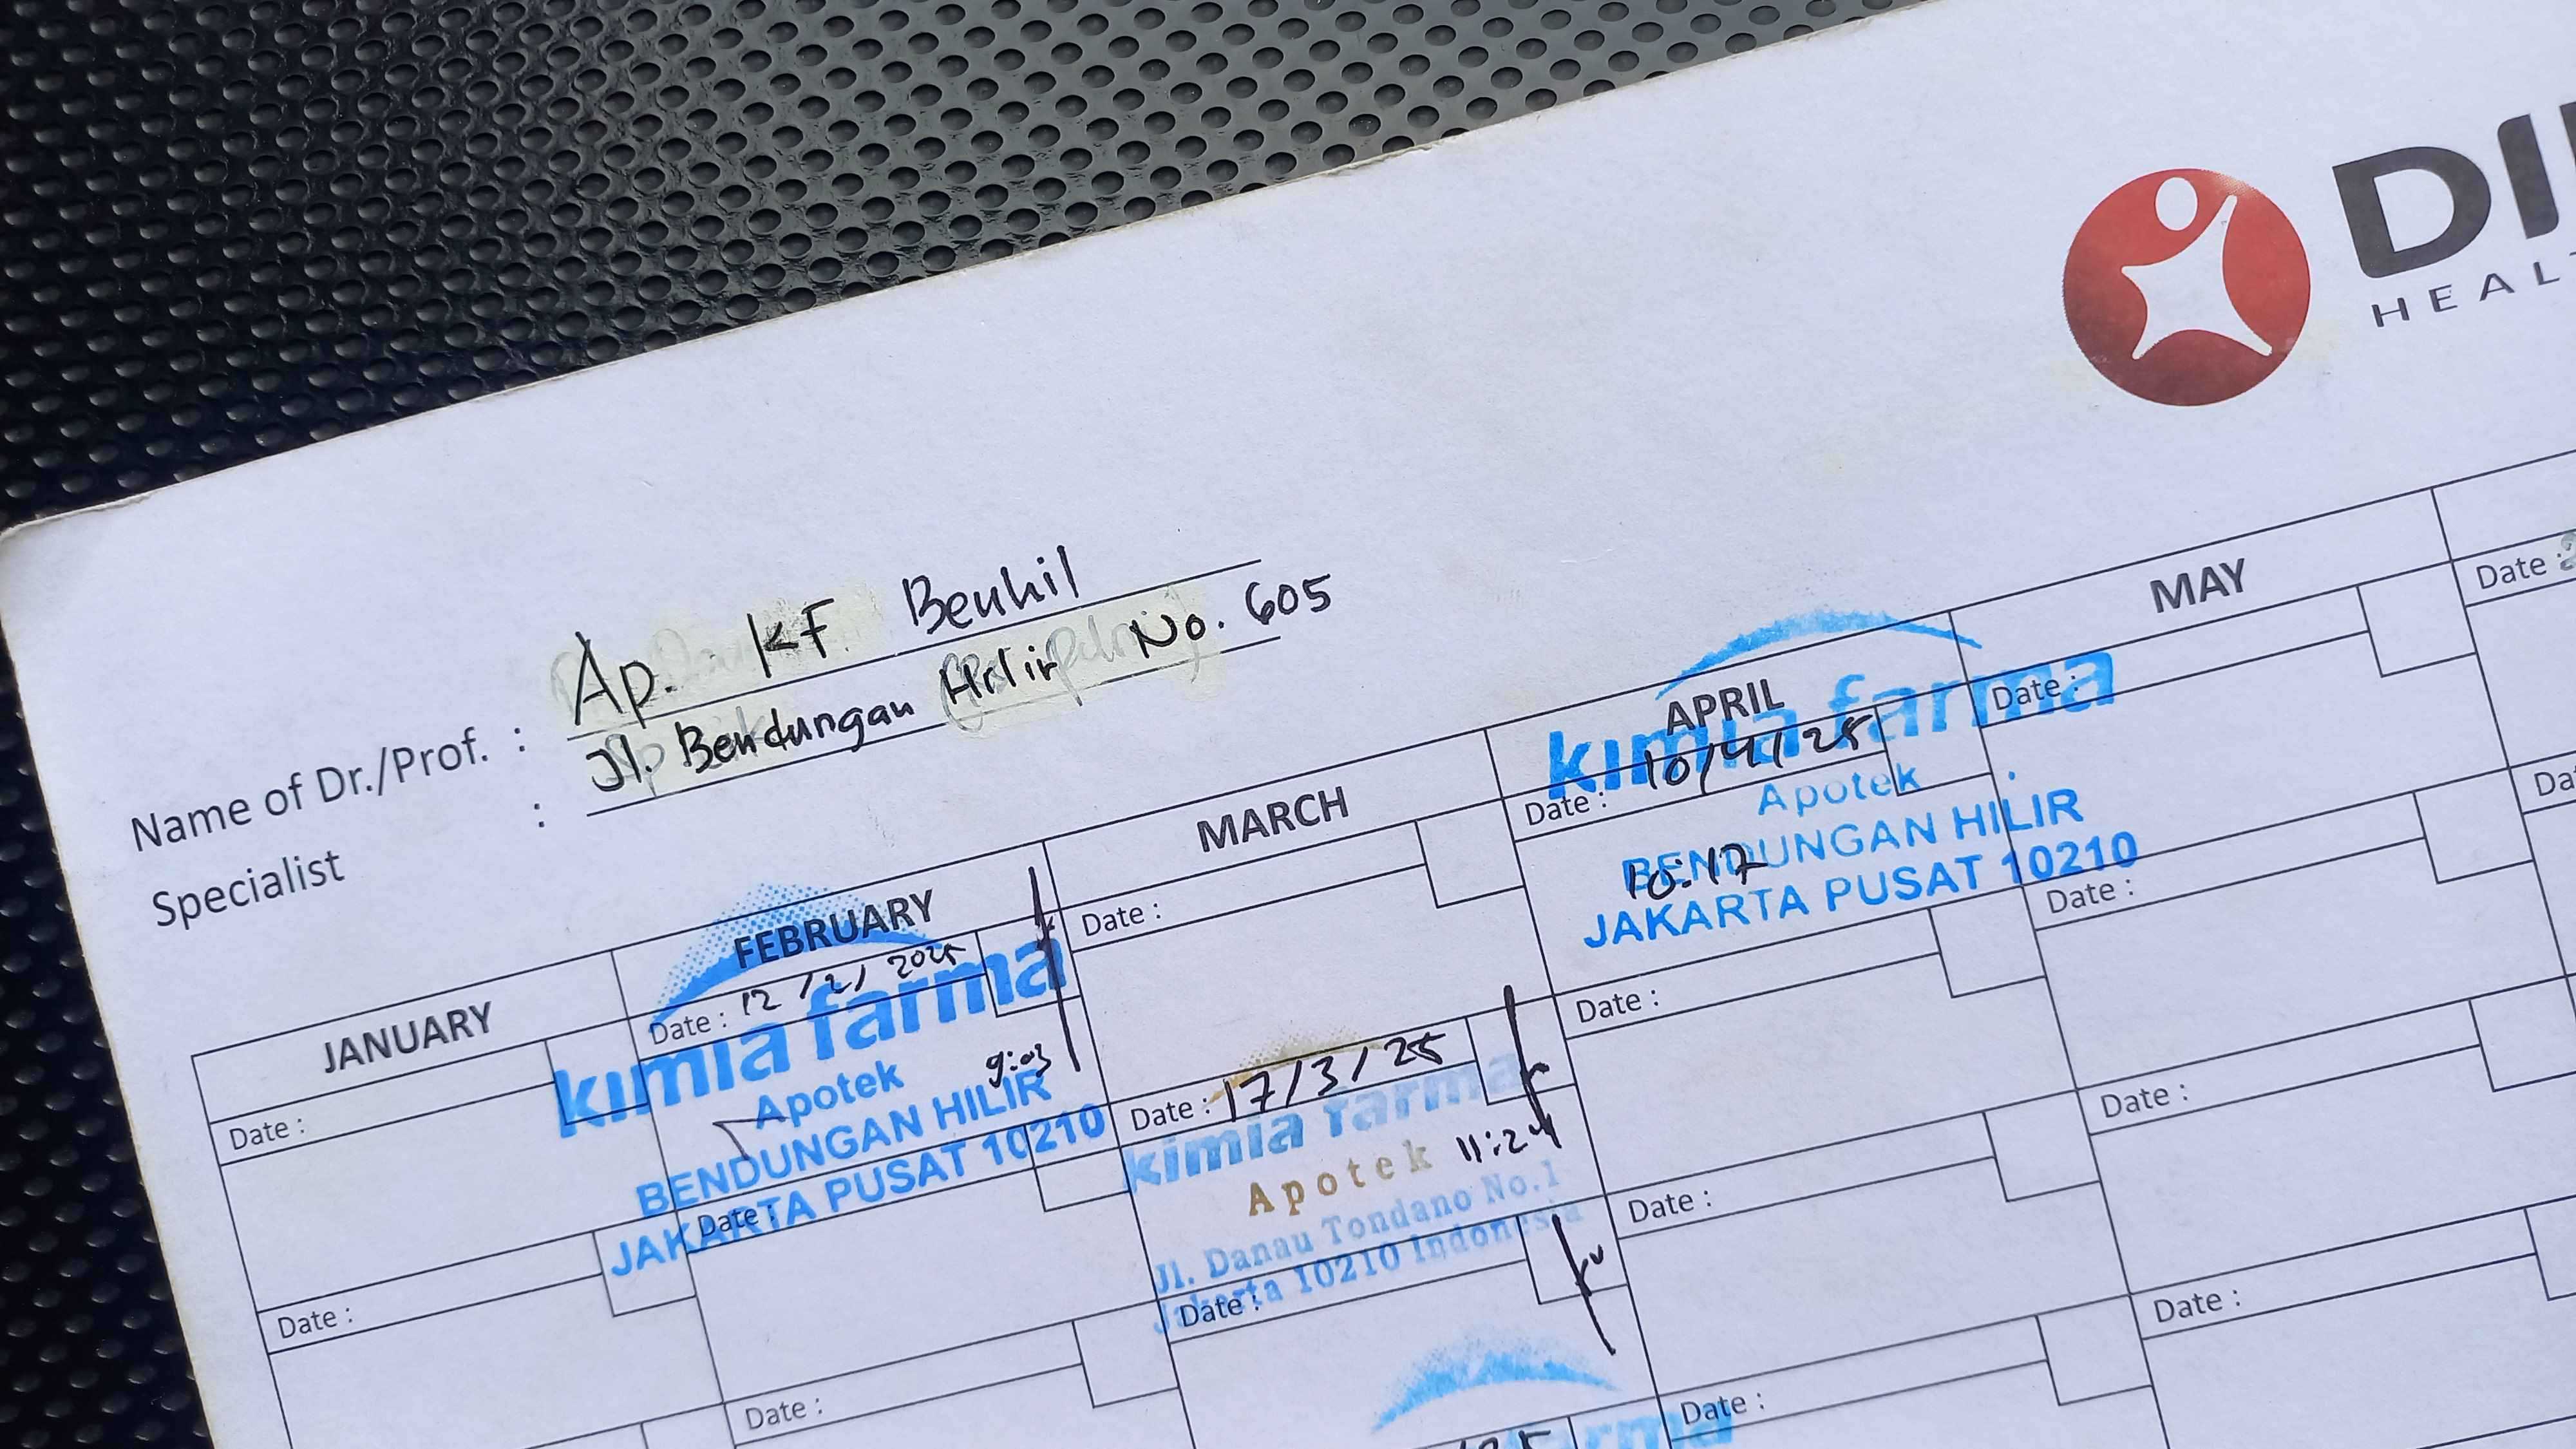 DI
HEAL
Name of Dr./Prof. : Ap. KF Benhil
Specialist : Jl. Bendungan Hilir No. 605
JANUARY
Date :
Date :
FEBRUARY
Date : 12/2/2025
kimia farma
9:03
Apotek
BENDUNGAN HILIR
JAKARTA PUSAT 10210
Date :
Date :
MARCH
Date :
Date : 17/3/25
kimia farma
Apotek 11:24
Jl. Danau Tondano No.1
Jakarta 10210 Indonesia
Date :
APRIL
kimia farma
Date : 10/4/25
Apotek
BENDUNGAN HILIR
10:17
JAKARTA PUSAT 10210
Date :
Date :
Date :
MAY
Date :
Date :
Date :
Date :
Date :